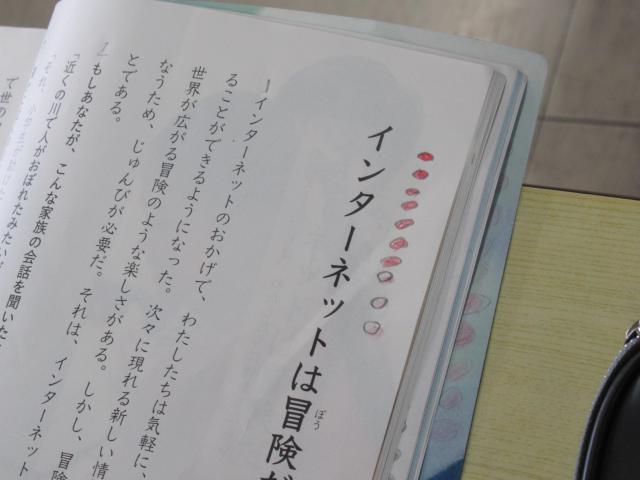 インターネットは冒険だ
ぼう
ーインターネットのおかげで、わたしたちは気軽に、
ることができるようになった。次々に現れる新しい情
世界が広がる冒険のような楽しさがある。しかし、冒険
なうため、じゅんびが必要だ。それは、インターネット
とである。
もしあなたが、こんな家族の会話を聞いた
「近くの川で人がおぼれたみたい
「それ、
で世の